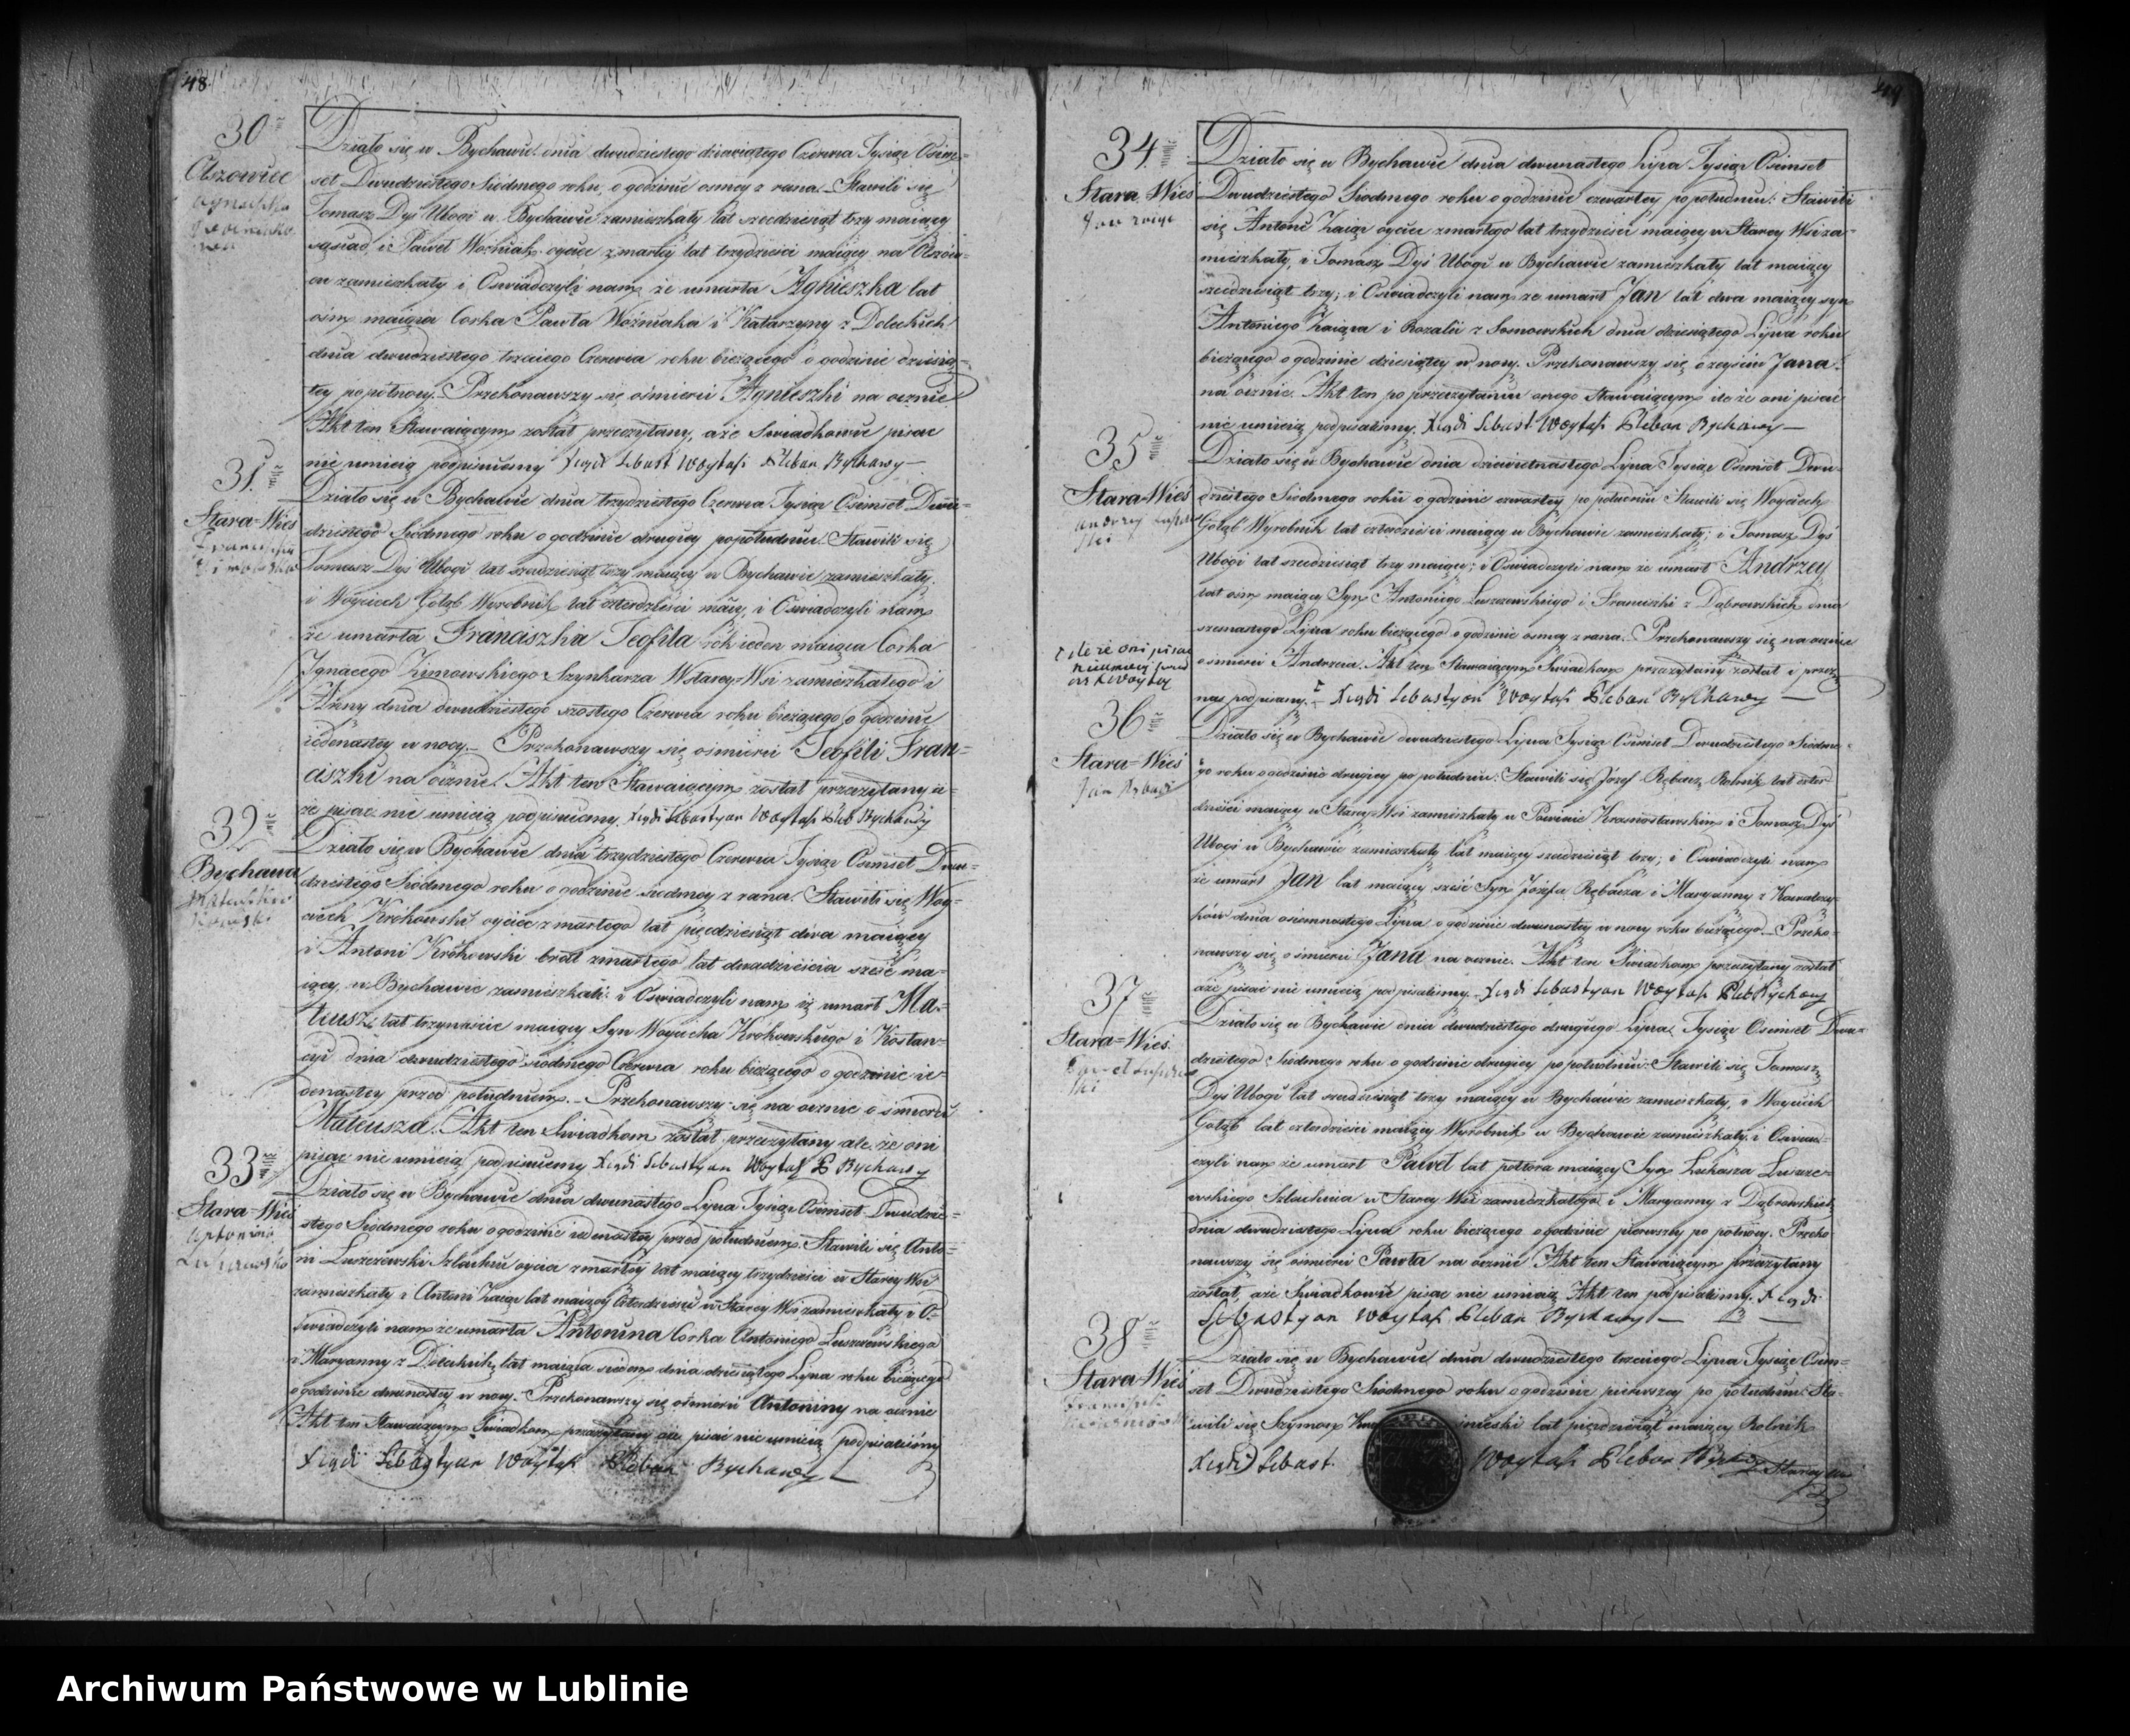 48
30
Olszowiec
Działo się w Bychawie dnia dwudziestego dziewiątego Czerwca Tysiąc Ośm=
set Dwudziestego Siódmego roku, o godzinie osmey z rana. Stawili się
Tomasz Dyś Ubogi w Bychawie zamieszkały lat szesdziesiąt trzy maiący
sąsiad, i Paweł Woźniak oyciec zmarłey lat trzydzieści maiący na Olszow=
cu zamieszkały i Oswiadczyli nam że umarła Agnieszka lat
ośm maiąca Corka Pawła Woźniaka i Katarzyny z Doleckich
dnia dwudziestego trzeciego Czerwca roku bieżącego o godzinie dziesią=
tey popołnocy. Przekonawszy się o śmierci Agnieszki na ocznie
Akt ten Stawaiącym został przeczytany, aże Swiadkowie pisac
nie umieią podpisuiemy Xiądz Sebast Woytaś Pleban Bychawy
31
Stara=Wieś
Franciszka
Działo się w Bychawie dnia trzydziestego Czerwca Tysiąc Osmset Dwu=
dziestego Siodmego roku o godzinie drugiey popołudniu. Stawili się
Tomasz Dyś Ubogi lat szesdziesiąt trzy maiący w Bychawie zamieszkały
i Woyciech Gołąb Wyrobnik lat czterdzieści maią, i Oswiadczyli nam
że umarła Franciszka Teofila rok ieden maiąca Corka
Ignacego Zimowskiego Szynkarza Wstarey=Wsi zamieszkałego i
Anny dnia dwudziestego szostego Czerwca roku bieżącego o godzinie
iedenastey w nocy. Przekonawszy się o śmierci Teofili Fran=
ciszki na ocznie. Akt ten Stawaiącym został przeczytany a=
że pisac nie umieią podpisuiemy. Xiądz Sebastyan Woytaś Pleb Bychawy
32
Bychawa
Działo się w Bychawie dnia trzydziestego Czerwca Tysiąc Osmset Dwu=
dziestego Siódmego roku o godzinie siodmey z rana. Stawili się Woy=
ciech Krókowski oyciec zmarłego lat pięcdziesiąt dwa maiący
i Antoni Krókowski brat zmarłego lat dwadzieścia sześć ma=
iący, w Bychawie zamieszkali i Oswiadczyli nam iż umarł Ma=
teusz lat trzynaście maiący Syn Woyciecha Krokowskiego i Kostan=
cyi dnia dwudziestego siódmego Czerwca roku bieżącego o godzinie ie=
denastey przed południem. Przekonawszy się na ocznie o śmierci
Mateusza. Akt ten Swiadkom został przeczytany ale że oni
pisac nie umieią podpisuiemy Xiądz Sebastyan Woytaś P Bychawy
33
Stara=Wieś
Antonina
Działo się w Bychawie dnia dwunastego Lipca Tysiąc Osmset Dwudzie=
stego Siodmego roku o godzinie iedenastey przed południem. Stawili się Anto=
ni Luszczewski Szlachcic oyciec zmarłey lat maiący trzydzieści w Starey Wsi
zamieszkały i Antoni Zaiąc lat maiący Czterdzieści w Starey Wsi zamieszkały i O=
świadczyli nam ze umarła Antonina Corka Antoniego Luszczewskiego
i Maryanny z lat maiąca siedem dnia dziesiątego Lipca roku bieżącego
o godzinie dwunastey w nocy. Przekonawszy się o śmierci Antoniny na ocznie
Akt ten Stawaiącym Swiadkom przeczytany aże pisać nie umieią podpisalismy
Xiądz Sebastyan Woytaś Pleban Bychawy
49
34
Stara Wieś
Jan zaiąc
Działo się w Bychawie dnia dwunastego Lipca Tysiąc Osmset
Dwudziestego Siodmego roku o godzinie czwartey popołudniu: Stawili
się Antoni Zaiąc oyciec zmarłego lat trzydzieści maiący w Starey Wsi za=
mieszkały, i Tomasz Dyś Ubogi w Bychawie zamieszkały lat maiący
szesdziesiąt trzy; i Oswiadczyli nam ze umarł Jan lat dwa maiący syn
Antoniego Zaiąca i Rozalii z Sosnowskich dnia dziesiątego Lipca roku
bieżącego o godzinie dziesiątey w nocy. Przekonawszy się o Jana
na ocznie. Akt ten po przeczytaniu onego Stawaiącym ile że oni pisać
nie umieią podpisalismy. Xiądz Sebast Woytaś Pleban Bychawy
35
Stara=Wieś
Działo się w Bychawie dnia dziewietnastego Lipca Tysiąc Osmset Dwu=
dziestego Siodmego roku o godzinie czwartey po południu Stawili się Woyciech
Gołąb Wyrobnik lat czterdzieści maiący w Bychawie zamieszkały; i Tomasz Dyś
Ubogi lat szesdziesiąt trzy maiący; i Oświadczyli nam ze umarł Andrzey
lat ośm maiący Syn Antoniego Luszczewskiego i Franciszki z Dąbrowskich dnia
szesnastego Lipca roku bieżącego o godzinie osmey z rana. Przekonawszy się na ocznie
o smierci Andrzeia. Akt ten Stawaiącym Swiadkom przeczytany został i przez
nas podpisany. Xiądz Sebastyan Woytaś Pleban Bychawy
ile że oni pisac
nieumieią
36
Stara=Wieś
Jan Rębacz
Działo się w Bychawie dwudziestego Lipca Tysiąc Osmset Dwudziestego Siodme=
go roku o godzinie drugiey po południu. Stawili się Józef Rębacz Rolnik lat czter=
dzieści maiący w Starey=Wsi zamieszkały w Powiecie Krasnostawskim i Tomasz Dyś
Ubogi w Bychawie zamieszkały lat maiący szesdziesiąt trzy; i Oswiadczyli nam
że umarł Jan lat maiący sześć Syn Józefa Rębacza i Maryanny z Kowalczy=
ków dnia osiemnastego Lipca o godzinie dwunastey w nocy roku bieżącego. Przeko=
nawszy się o śmierci Jana na ocznie. Akt ten Swiadkom przeczytany został
aże pisać nie umieią podpisalismy. Xiądz Sebastyan Woytaś Pleb Bychawy
37
Stara=Wieś
Działo się w Bychawie dnia dwudziestego drugiego Lipca Tysiąc Osmset Dwu=
dziestego Siodmego roku o godzinie drugiey po południu. Stawili się Tomasz
Dyś Ubogi lat szesdziesiąt trzy maiący w Bychawie zamieszkały, i Woyciech
Gołąb lat czterdzieści maiący Wyrobnik w Bychawie zamieszkały i Oświad=
czyli nam że umarł Paweł lat półtora maiący Syn Łukasza Luszcze=
wskiego Szlachcica w Starey Wsi zamieszkałego i Maryanny z Dąbrowskich
dnia dwudziestego Lipca roku bieżącego o godzinie pierwszey po północy. Przeko=
nawszy się o śmierci Pawła na ocznie Akt ten Stawaiącym przeczytany
został, aże Swiadkowie pisac nie umieią Akt ten podpisalismy. Xiądz
Sebastyan Woytaś Pleban Bychawy
38
Stara=Wieś
Działo się w Bychawie dnia dwudziestego trzeciego Lipca Tysiąc Osm=
set Dwudziestego Siodmego roku o godzinie pierwszey po południu. Sta=
wili się Szymon lat pięcdziesiąt maiący Rolnik
Xiądz Sebast. Woytaś Pleban
Archiwum Państwowe w Lublinie